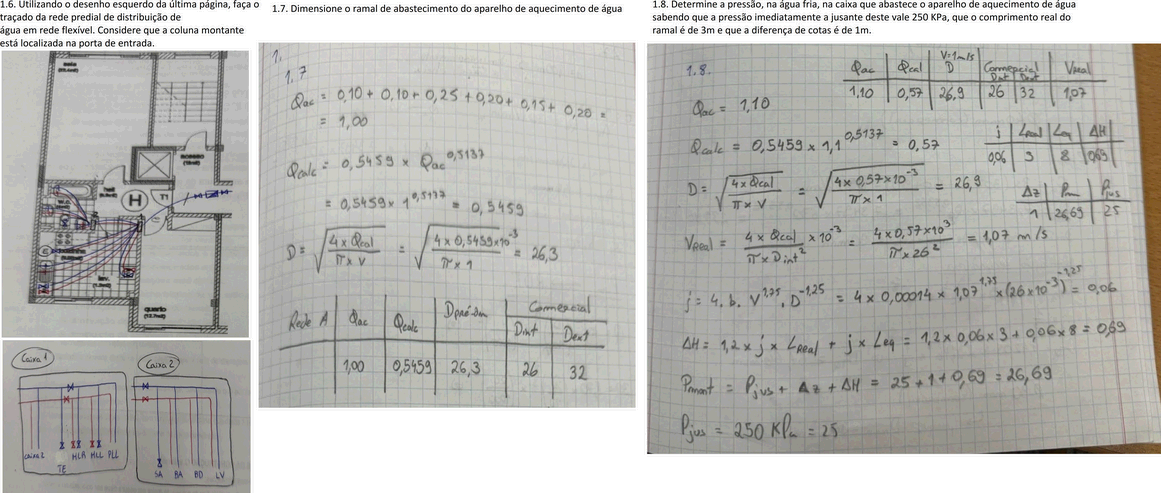 1.6. Utilizando o desenho esquerdo da última página, faça o
traçado da rede predial de distribuição de
água em rede flexível. Considere que a coluna montante
está localizada na porta de entrada.
sala
hall
H
T1
W.C.
E
lav.
quarto
Caixa 1
caixa 2
TE
HLR HLL PLL
Caixa 2
SA BA BD LV
1.7. Dimensione o ramal de abastecimento do aparelho de aquecimento de água
1.
1.7
Qac = 0,10 + 0,10 + 0,25 + 0,20 + 0,15 + 0,20 =
= 1,00
Qcalc = 0,5459 x Qac^0,5137
= 0,5459 x 1^0,5137 = 0,5459
D = √(4 x Qcal / π x V) = √(4 x 0,5459 x 10^-3 / π x 1) = 26,3
Rede A | Qac | Qcalc | D | Comercial
Dint | Dext
1,00 | 0,5459 | 26,3 | 26 | 32
1.8. Determine a pressão, na água fria, na caixa que abastece o aparelho de aquecimento de água
sabendo que a pressão imediatamente a jusante deste vale 250 KPa, que o comprimento real do
ramal é de 3m e que a diferença de cotas é de 1m.
1.8.
Qac | Qcal | V=1m/s D | Comercial | Vreal
Dint | Dext
1,10 | 0,57 | 26,9 | 26 | 32 | 1,07
Qac = 1,10
Qcalc = 0,5459 x 1,1^0,5137 = 0,57
j | Lreal | Leq | ΔH
0,06 | 3 | 8 | 0,69
D = √(4 x Qcal / π x V) = √(4 x 0,57 x 10^-3 / π x 1) = 26,9
Δz | Pm | Pjus
1 | 26,69 | 25
Vreal = 4 x Qcal / π x Dint^2 x 10^-3 = 4 x 0,57 x 10^3 / π x 26^2 = 1,07 m/s
j = 4. b. V^1,75. D^-1,25 = 4 x 0,00014 x 1,07^1,75 x (26 x 10^-3)^-1,25 = 0,06
ΔH = 1,2 x j x LReal + j x Leq = 1,2 x 0,06 x 3 + 0,06 x 8 = 0,69
Pmont = Pjus + Δz + ΔH = 25 + 1 + 0,69 = 26,69
Pjus = 250 KPa = 25